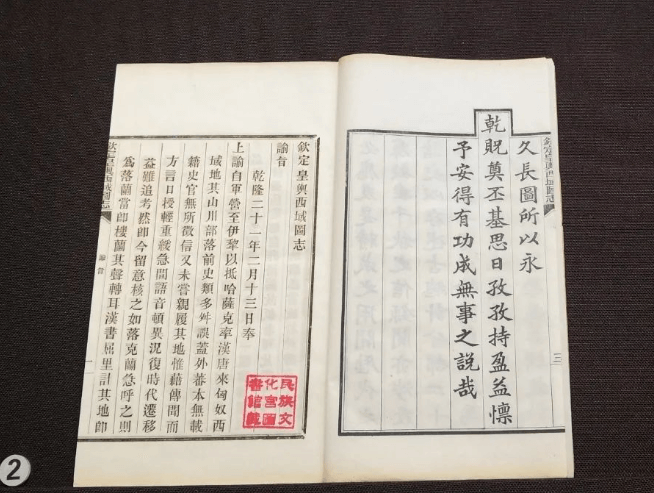 久長圖所以永
乾貺奠丕基思日孜孜持盈益懍
予安得有功成無事之說哉
欽定皇輿西域圖志
三
欽定皇輿西域圖志
諭旨
乾隆二十一年二月十三日奉
上諭自軍營至伊犂以抵哈薩克率漢唐來匈奴西
域地其山川部落前史類多舛誤蓋外蕃本無載
籍史官無所徵信又未嘗親履其地惟藉傳聞而
方言日授輕重緩急間語音頓異況復時代遷移
益難追考然卽今留意核之如落克蘭急呼之則
爲落蘭當卽樓蘭其聲轉耳漢書屈里計其地卽
欽定皇輿西域圖志
諭旨
一
民族文
化宮圖
書館藏
2